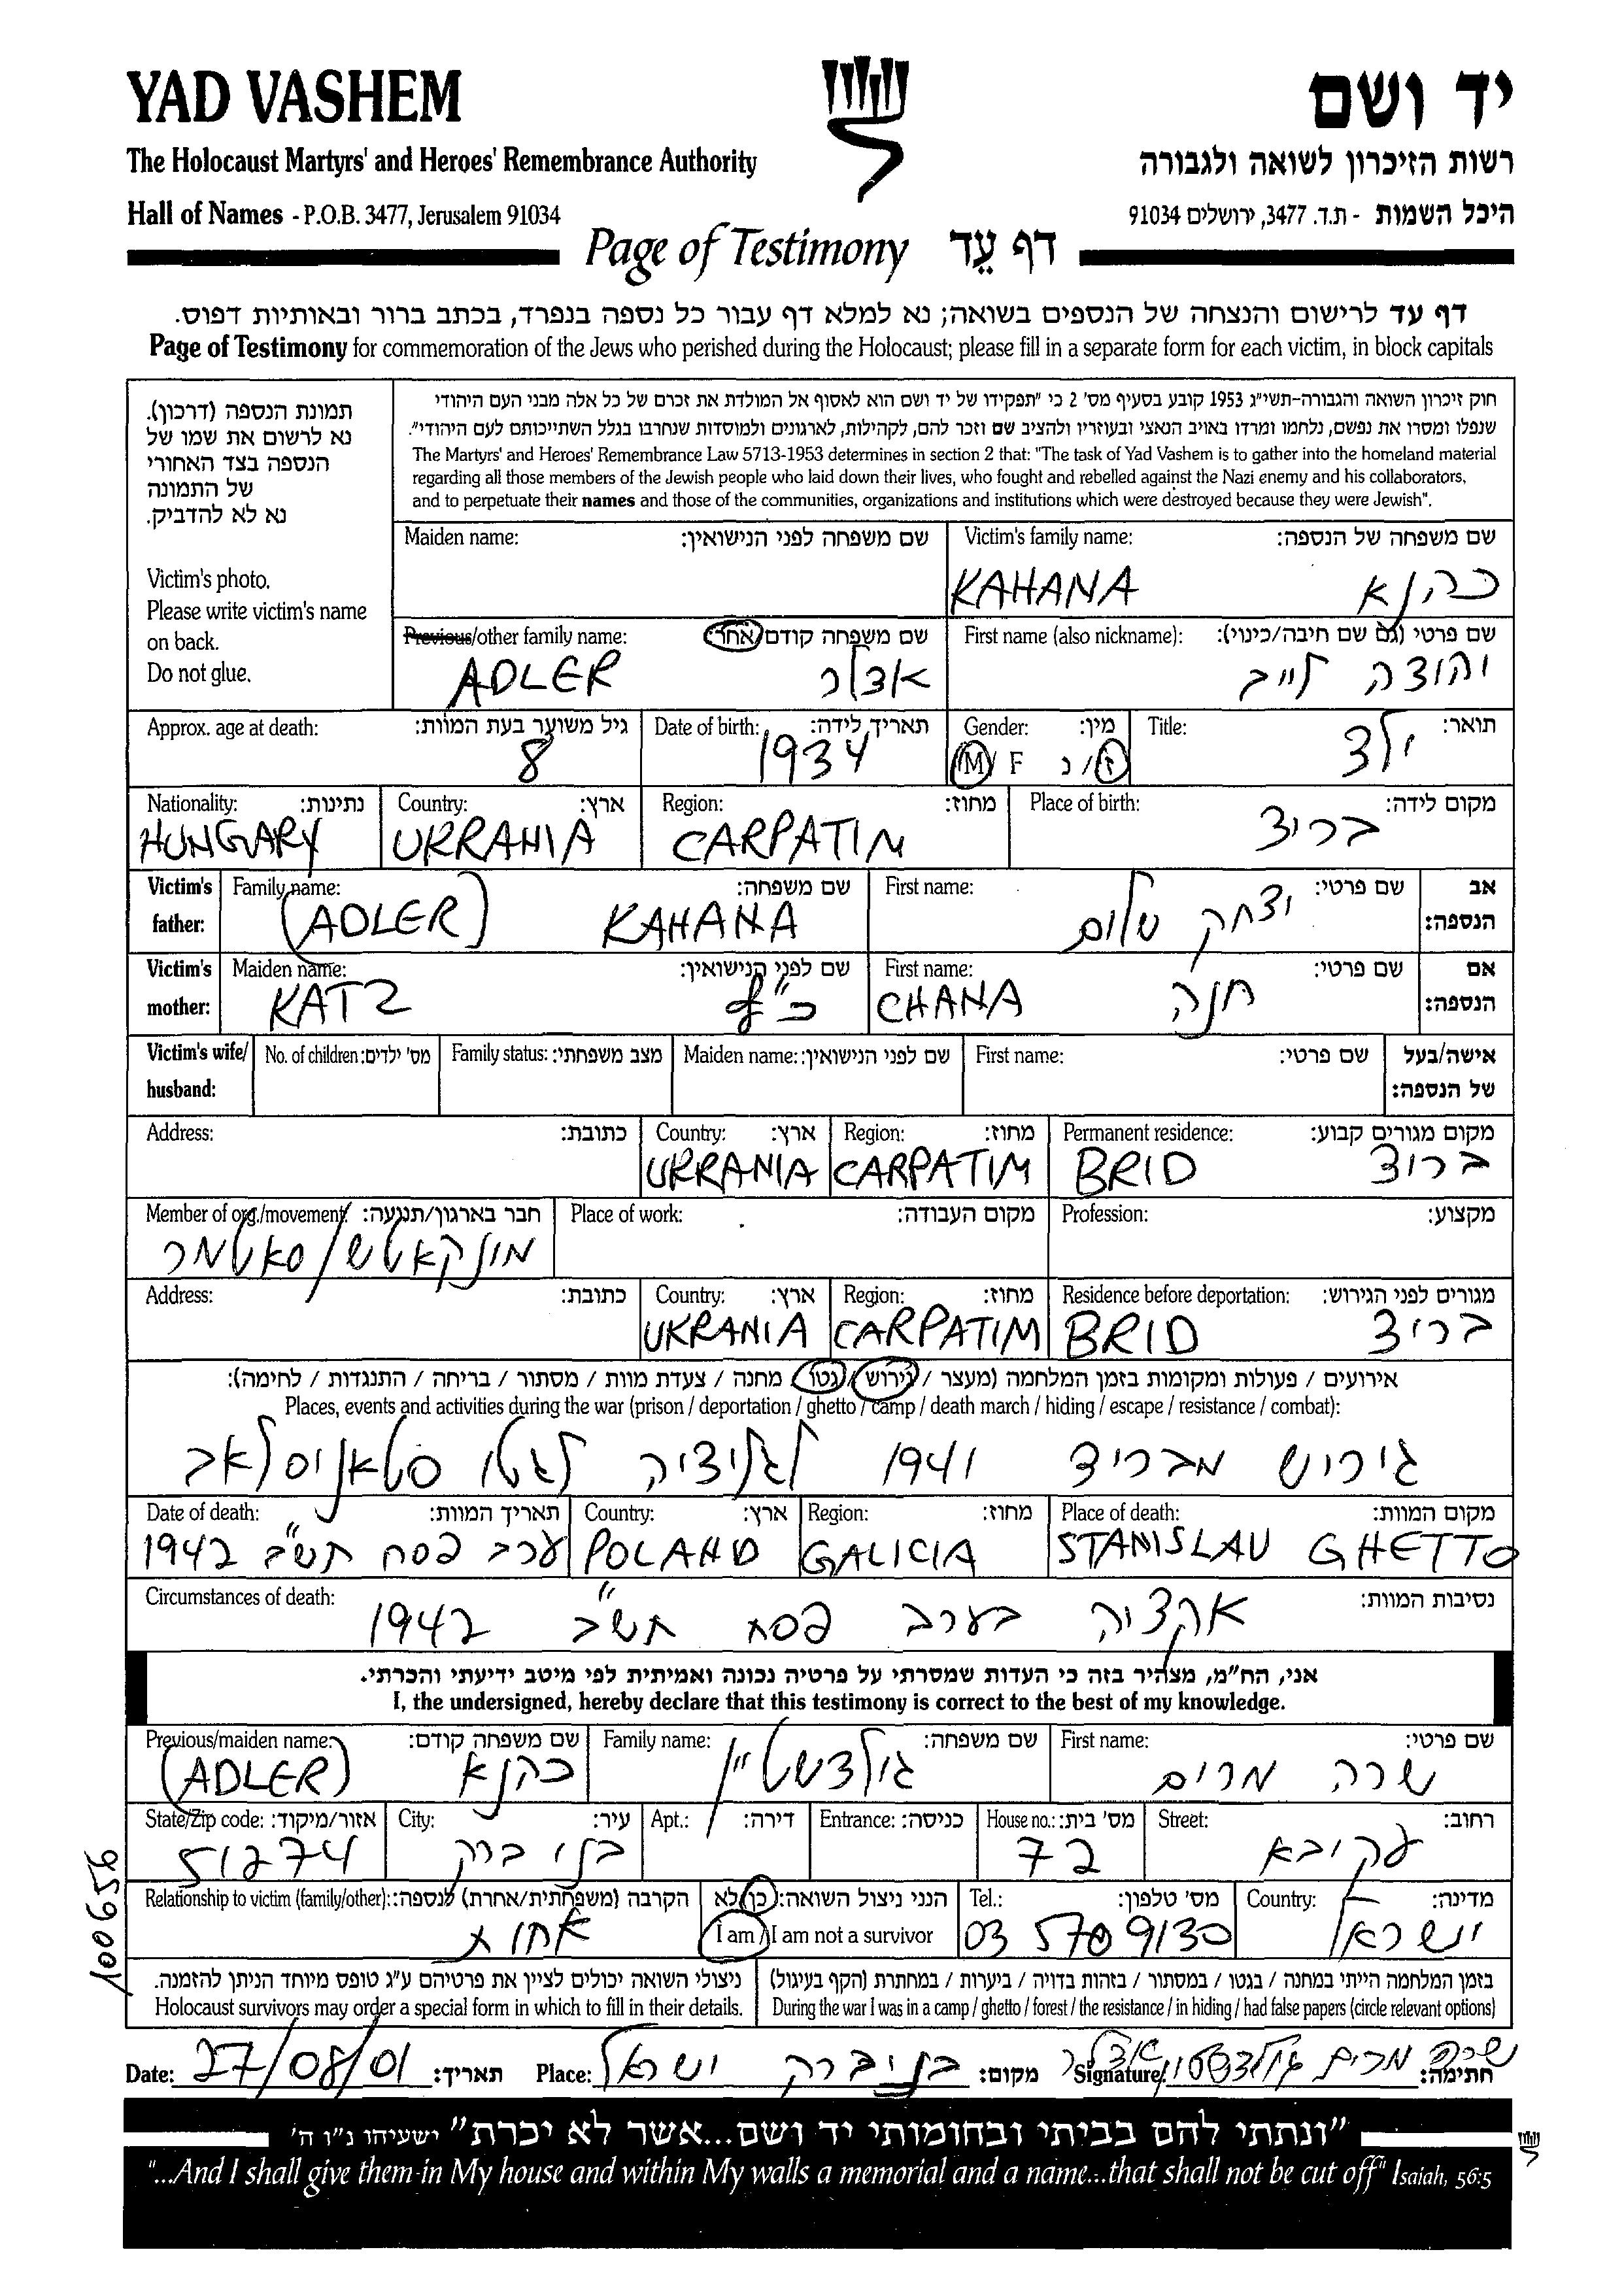 YAD VASHEM יד ושם
The Holocaust Martyrs' and Heroes' Remembrance Authority רשות הזיכרון לשואה ולגבורה
Hall of Names - P.O.B. 3477, Jerusalem 91034 היכל השמות - ת.ד. 3477, ירושלים 91034
Page of Testimony דף עֵד
דף עד לרישום והנצחה של הנספים בשואה; נא למלא דף עבור כל נספה בנפרד, בכתב ברור ובאותיות דפוס.
Page of Testimony for commemoration of the Jews who perished during the Holocaust; please fill in a separate form for each victim, in block capitals
תמונת הנספה (דרכון).
נא לרשום את שמו של
הנספה בצד האחורי
של התמונה
נא לא להדביק.
Victim's photo.
Please write victim's name
on back.
Do not glue.
חוק זיכרון השואה והגבורה-תשי"ג 1953 קובע בסעיף מס' 2 כי "תפקידו של יד ושם הוא לאסוף אל המולדת את זכרם של כל אלה מבני העם היהודי
שנפלו ומסרו את נפשם, נלחמו ומרדו באויב הנאצי ובעוזריו ולהציב שם וזכר להם, לקהילות, לארגונים ולמוסדות שנחרבו בגלל השתייכותם לעם היהודי".
The Martyrs' and Heroes' Remembrance Law 5713-1953 determines in section 2 that: "The task of Yad Vashem is to gather into the homeland material
regarding all those members of the Jewish people who laid down their lives, who fought and rebelled against the Nazi enemy and his collaborators,
and to perpetuate their names and those of the communities, organizations and institutions which were destroyed because they were Jewish".
Maiden name: שם משפחה לפני הנישואין: Victim's family name: שם משפחה של הנספה:
KAHANA כהנא
Previous/other family name: שם משפחה קודם/אחר: First name (also nickname): שם פרטי (גם שם חיבה/כינוי):
ADLER אדלר יהודה לייב
Approx. age at death: גיל משוער בעת המוות: Date of birth: תאריך לידה: Gender: מין: Title: תואר:
8 1934 M/ F ז/נ ילד
Nationality: נתינות: Country: ארץ: Region: מחוז: Place of birth: מקום לידה:
HUNGARY UKRANIA CARPATIM בריד
Victim's Family name: שם משפחה: First name: שם פרטי: אב
father: (ADLER) KAHANA יצחק שלום הנספה:
Victim's Maiden name: שם לפני הנישואין: First name: שם פרטי: אם
mother: KATZ כ"ץ CHANA חנה הנספה:
Victim's wife/ No. of children: מס' ילדים: Family status: מצב משפחתי: Maiden name: שם לפני הנישואין: First name: שם פרטי: אישה/בעל
husband: של הנספה:
Address: כתובת: Country: ארץ: Region: מחוז: Permanent residence: מקום מגורים קבוע:
UKRANIA CARPATIM BRID בריד
Member of org./movement: חבר בארגון/תנועה: Place of work: מקום העבודה: Profession: מקצוע:
מונקאטש/סאטמר
Address: כתובת: Country: ארץ: Region: מחוז: Residence before deportation: מגורים לפני הגירוש:
UKRANIA CARPATIM BRID בריד
אירועים / פעולות ומקומות בזמן המלחמה (מעצר / גירוש / גטו / מחנה / צעדת מוות / מסתור / בריחה / התנגדות / לחימה):
Places, events and activities during the war (prison / deportation / ghetto / camp / death march / hiding / escape / resistance / combat):
גירוש מבריד 1941 לגליציה לגטו סטאניסלאב
Date of death: תאריך המוות: Country: ארץ: Region: מחוז: Place of death: מקום המוות:
1942 ערב פסח תש"ב POLAND GALICIA STANISLAU GHETTO
Circumstances of death: נסיבות המוות:
אקציה בערב פסח תש"ב 1942
אני, הח"מ, מצהיר בזה כי העדות שמסרתי על פרטיה נכונה ואמיתית לפי מיטב ידיעתי והכרתי.
I, the undersigned, hereby declare that this testimony is correct to the best of my knowledge.
Previous/maiden name: שם משפחה קודם: Family name: שם משפחה: First name: שם פרטי:
(ADLER) כהנא גולדשטיין שרה מרים
State/Zip code: אזור/מיקוד: City: עיר: Apt.: דירה: Entrance: כניסה: House no.: מס' בית: Street: רחוב:
51274 בני ברק 72 עקיבא
Relationship to victim (family/other): הקרבה (משפחתית/אחרת) לנספה: הנני ניצול השואה: כן/לא Tel.: מס' טלפון: Country: מדינה:
אחות I am / I am not a survivor 03 5709130 ישראל
1006556
ניצולי השואה יכולים לציין את פרטיהם ע"ג טופס מיוחד הניתן להזמנה. בזמן המלחמה הייתי במחנה / בגטו / במסתור / בזהות בדויה / ביערות / במחתרת (הקף בעיגול)
Holocaust survivors may order a special form in which to fill in their details. During the war I was in a camp / ghetto / forest / the resistance / in hiding / had false papers (circle relevant options)
Date: 27/08/01 תאריך: Place: בני ברק ישראל מקום: Signature: שרה מרים גולדשטיין אדלר חתימה:
"ונתתי להם בביתי ובחומותי יד ושם...אשר לא יכרת" ישעיהו נ"ו ה'
"...And I shall give them in My house and within My walls a memorial and a name...that shall not be cut off" Isaiah, 56:5